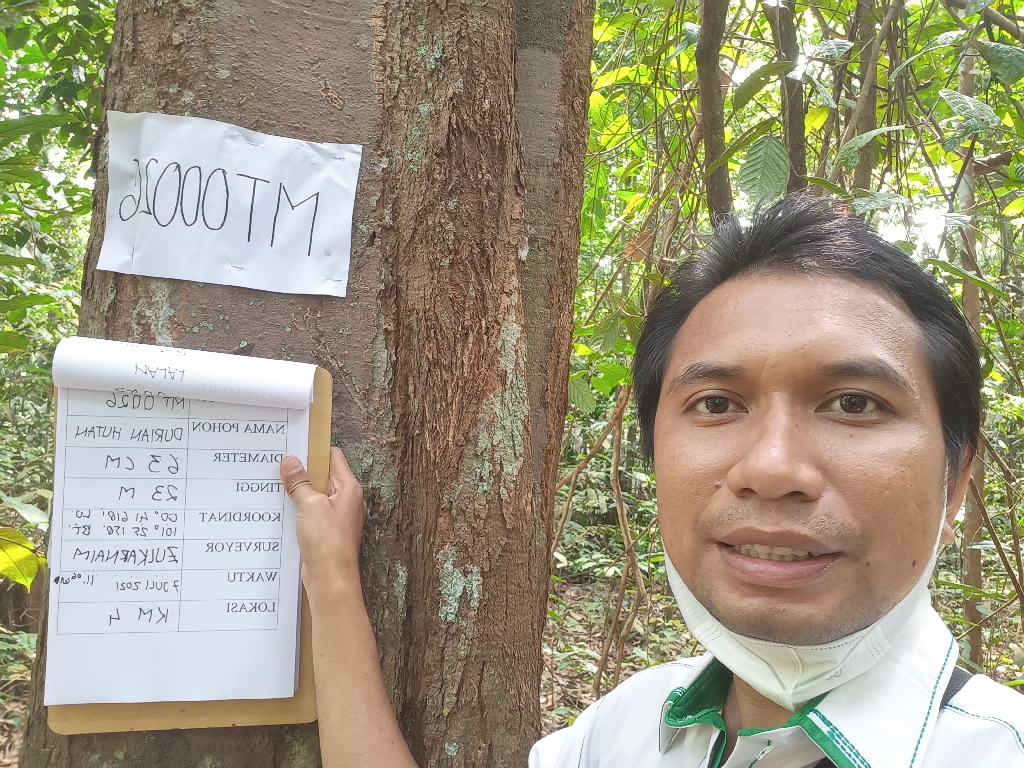 MT00026
LALAN
MT0026
NAMA POHON DURIAN HUTAN
DIAMETER 63 CM
TINGGI 23 M
KOORDINAT 00° 41' 618' LU
101° 25' 128' BT.
SURVEYOR ZULKARNAIM
WAKTU 7 JULI 2021 11.06 WIB
LOKASI KM 4